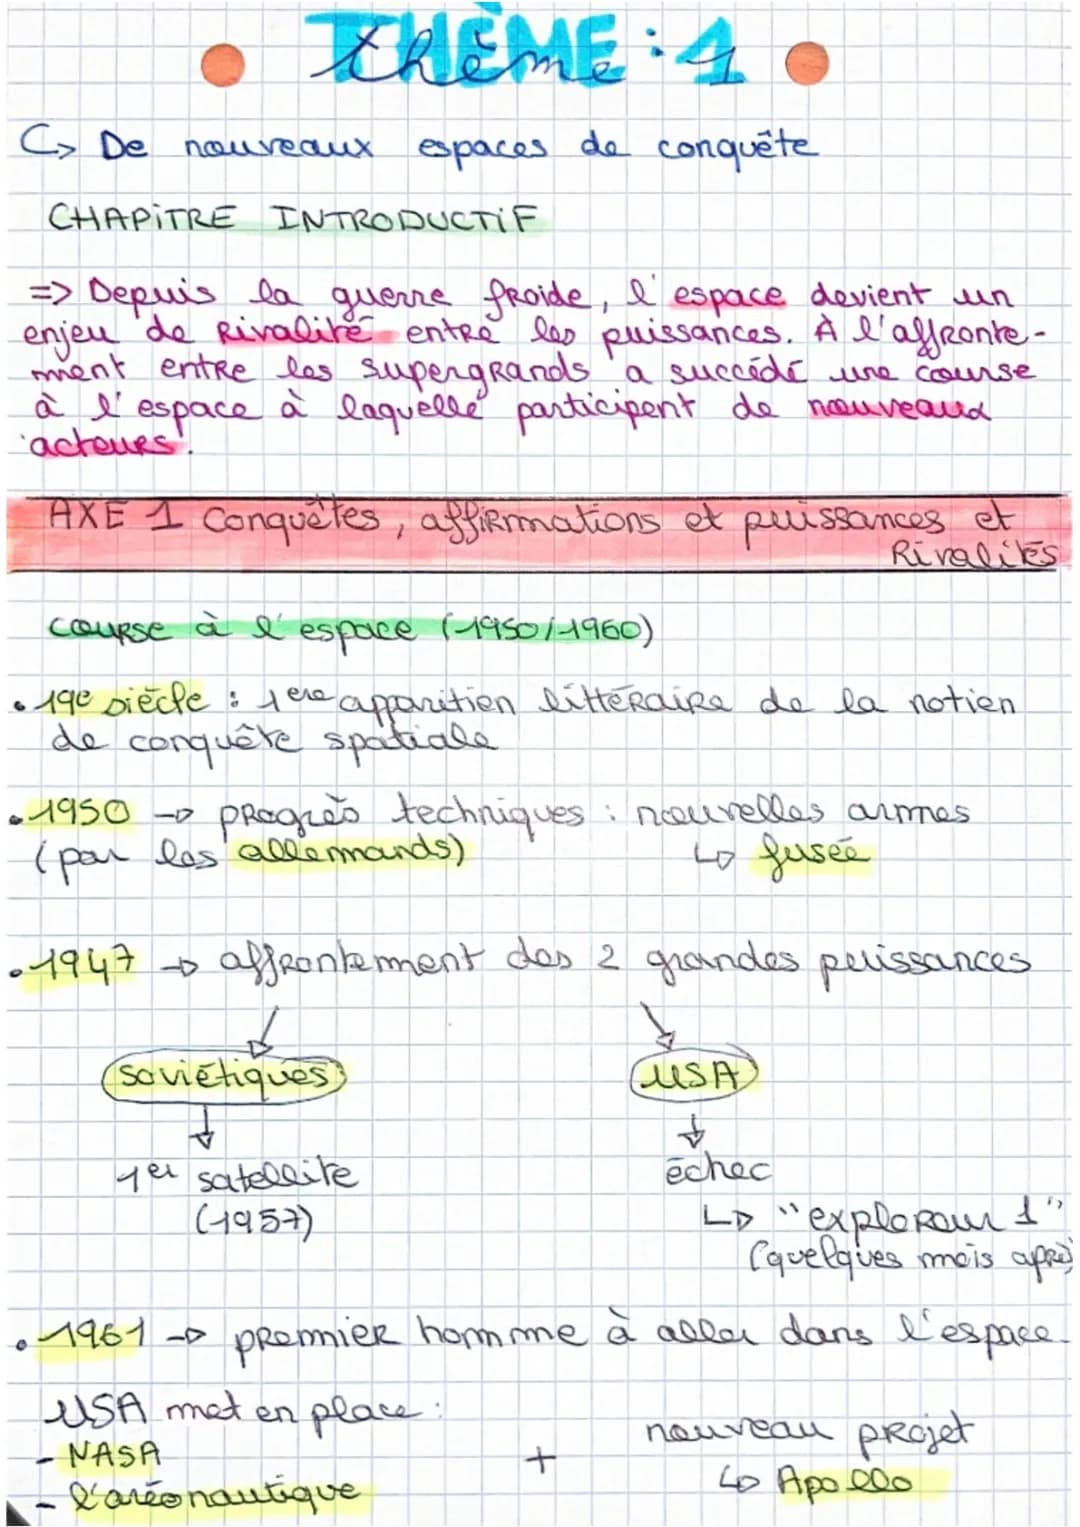 THÈME : 1
thème
↳ De nouveaux espaces de conquête
CHAPITRE INTRODUCTIF
=> Depuis la guerre froide, l'espace devient un
enjeu de Rivalité entre les puissances. À l'affronte-
ment entre les supergrands a succédé une course
à l'espace à laquelle participent de nouveaux
acteurs.
AXE 1 Conquêtes, affirmations et puissances et
Rivalités
course à l'espace (1950/1960)
• 19e siècle : 1ere apparition littéraire de la notion
de conquête spatiale
• 1950 → progrès techniques : nouvelles armes
(par les allemands) ↳ fusée
• 1947 → affrontement des 2 grandes puissances
soviétiques USA
1er satellite échec
(1957) ↳ "exploraur 1"
(quelques mois après)
• 1961 → premier homme à aller dans l'espace.
USA met en place :
- NASA + nouveau projet
- l'aréonautique ↳ Apollo